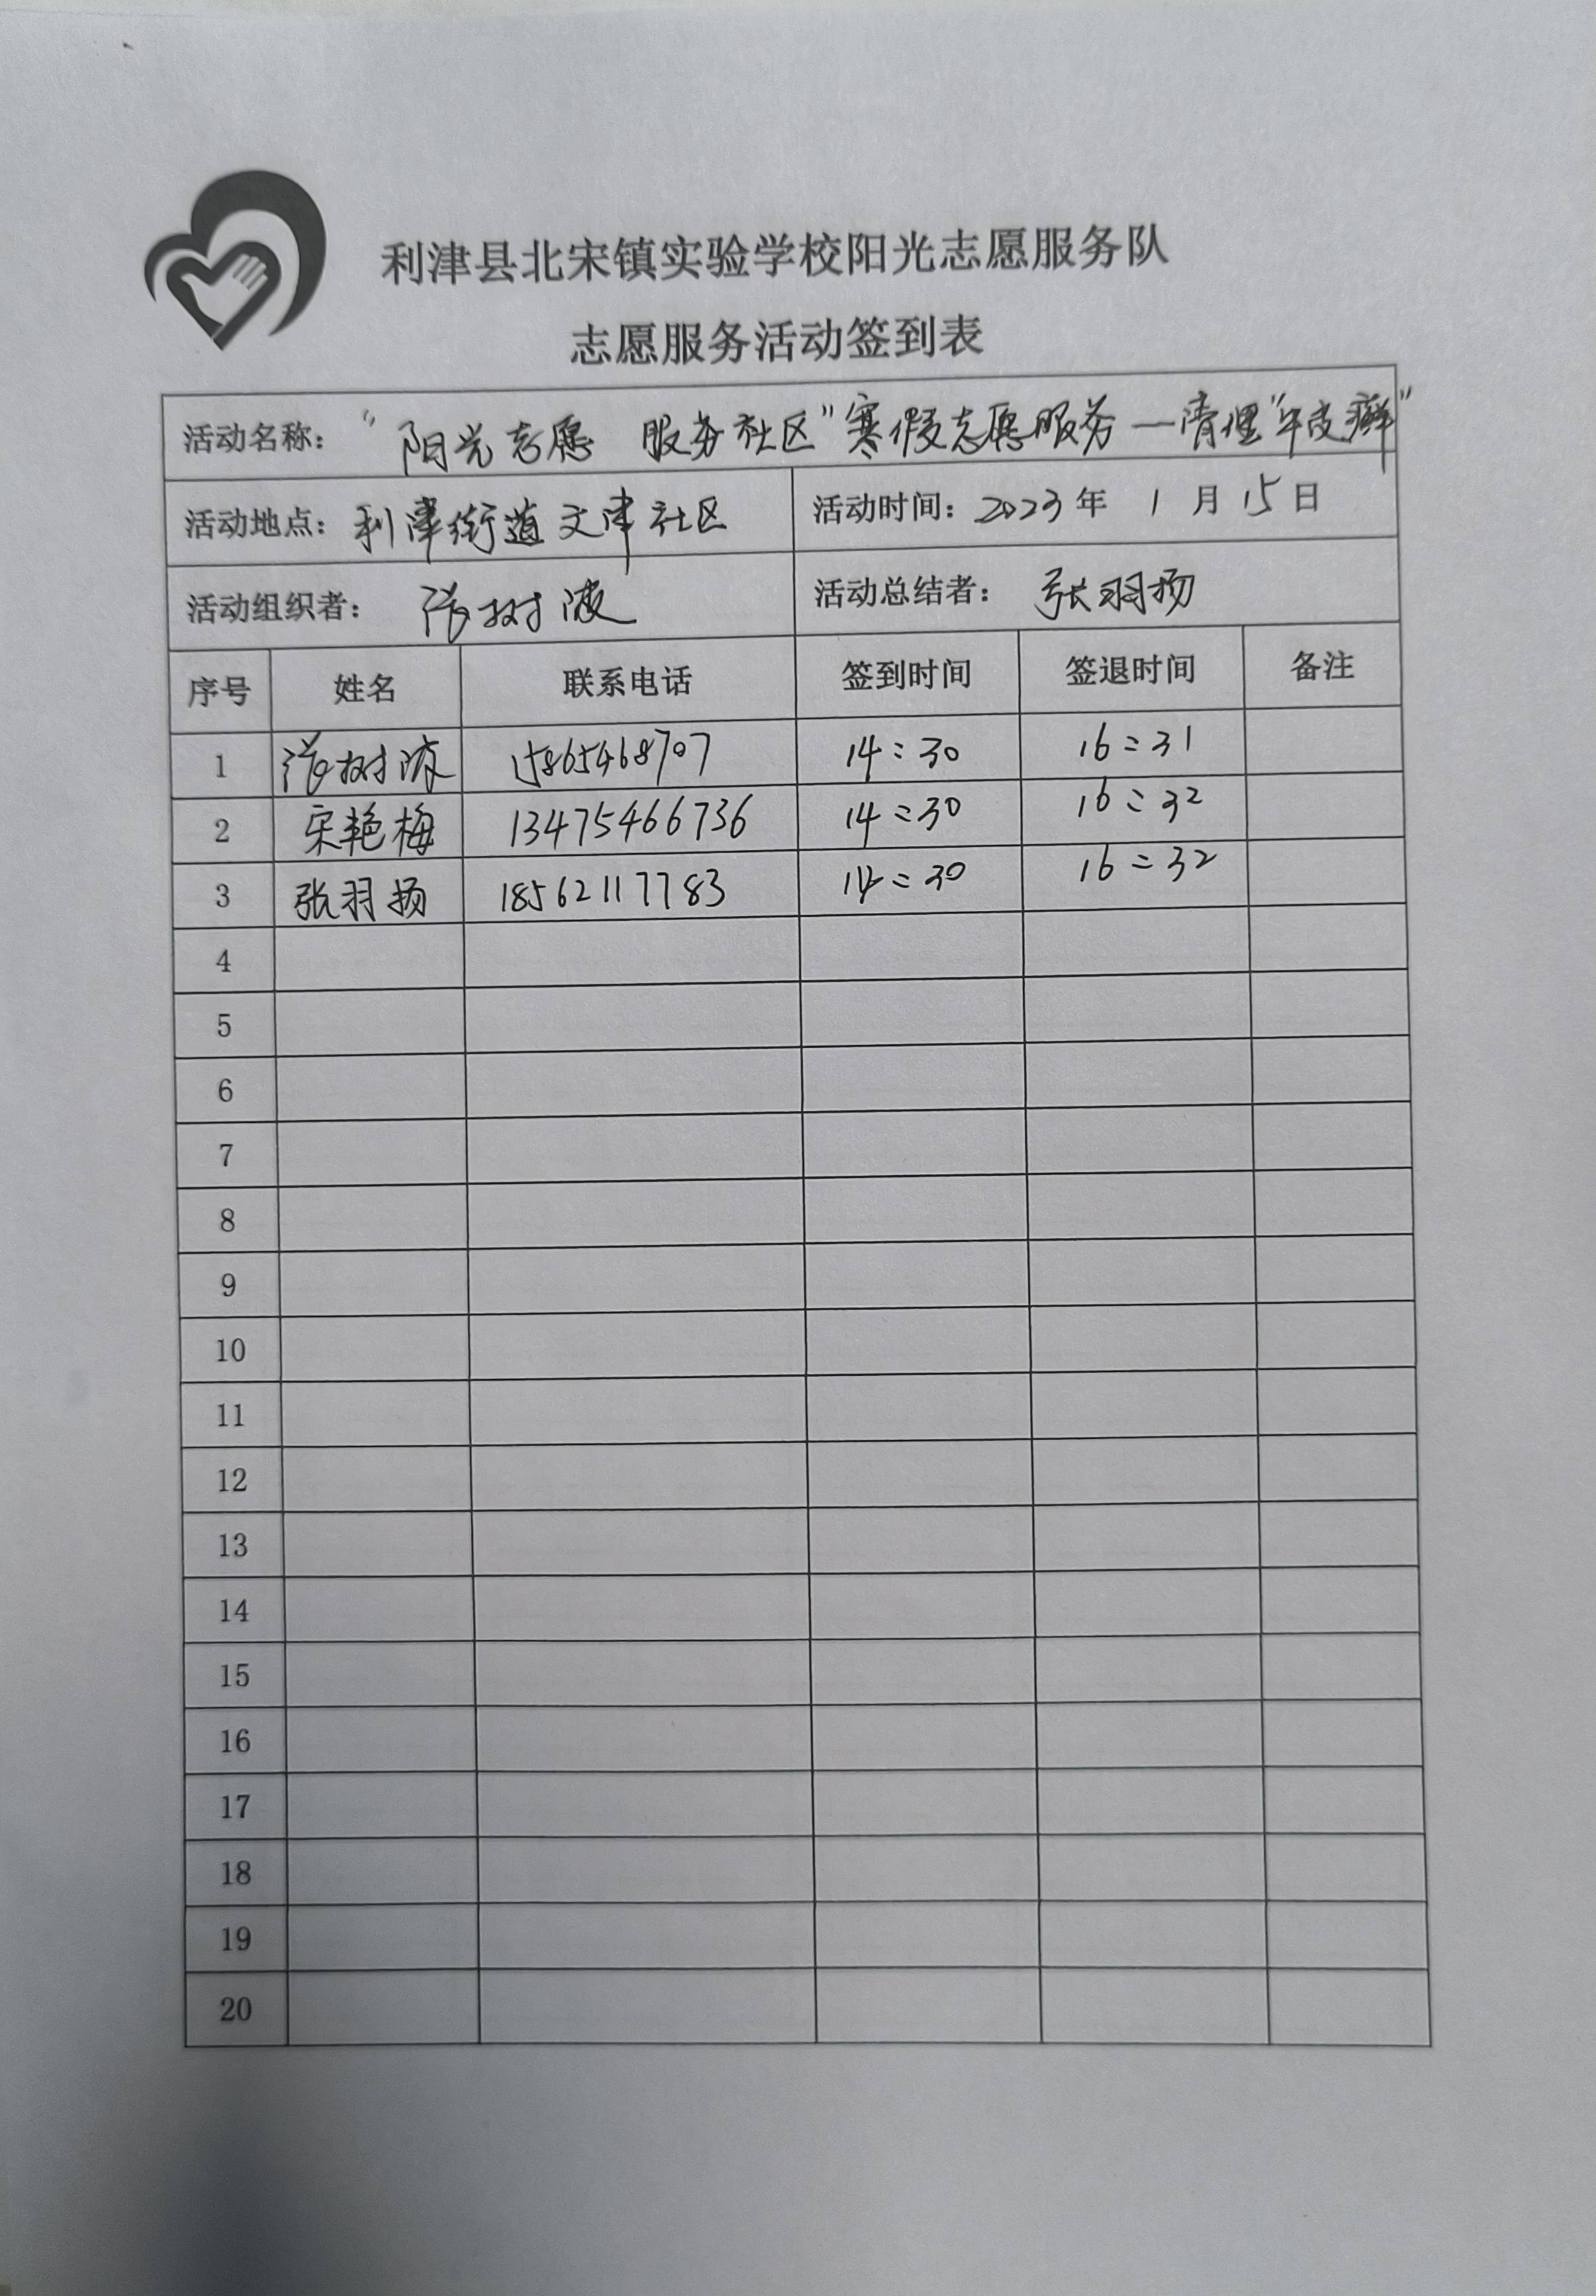 利津县北宋镇实验学校阳光志愿服务队
志愿服务活动签到表
活动名称： “阳光志愿 服务社区”寒假志愿服务—清理“牛皮癣”
活动地点：利津街道文津社区 活动时间：2023年 1 月 15 日
活动组织者： 树 活动总结者： 张羽扬
序号 姓名 联系电话 签到时间 签退时间 备注
1 树 15865468707 14:30 16:31
2 宋艳梅 13475466736 14:30 16:32
3 张羽扬 18562117783 14:30 16:32
4
5
6
7
8
9
10
11
12
13
14
15
16
17
18
19
20